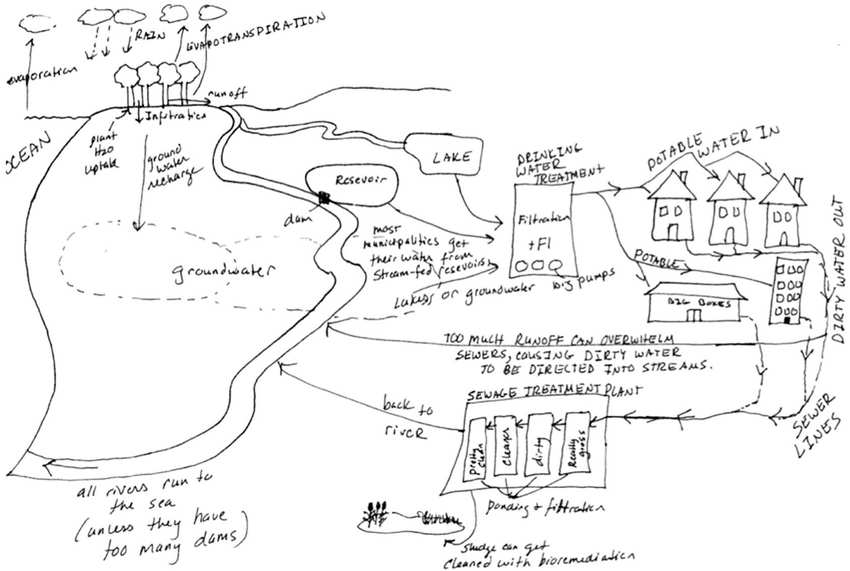 RAIN
EVAPOTRANSPIRATION
evaporation
runoff
Infiltration
OCEAN
plant
H2O
uptake
ground
water
recharge
LAKE
Reservoir
dam
groundwater
most
municipalities get
their water from
stream-fed reservoirs
Lakes or groundwater
DRINKING
WATER
TREATMENT
Filtration
+ Fl
big pumps
POTABLE WATER IN
POTABLE
BIG BOXES
DIRTY WATER OUT
TOO MUCH RUNOFF CAN OVERWHELM
SEWERS, COUSING DIRTY WATER
TO BE DIRECTED INTO STREAMS.
SEWAGE TREATMENT PLANT
SEWER
LINES
back to
river
pretty
clean
cleaner
dirty
Really gross
Ponding + filtration
sludge can get
cleaned with bioremediation
all rivers run to
the sea
(unless they have
too many dams)